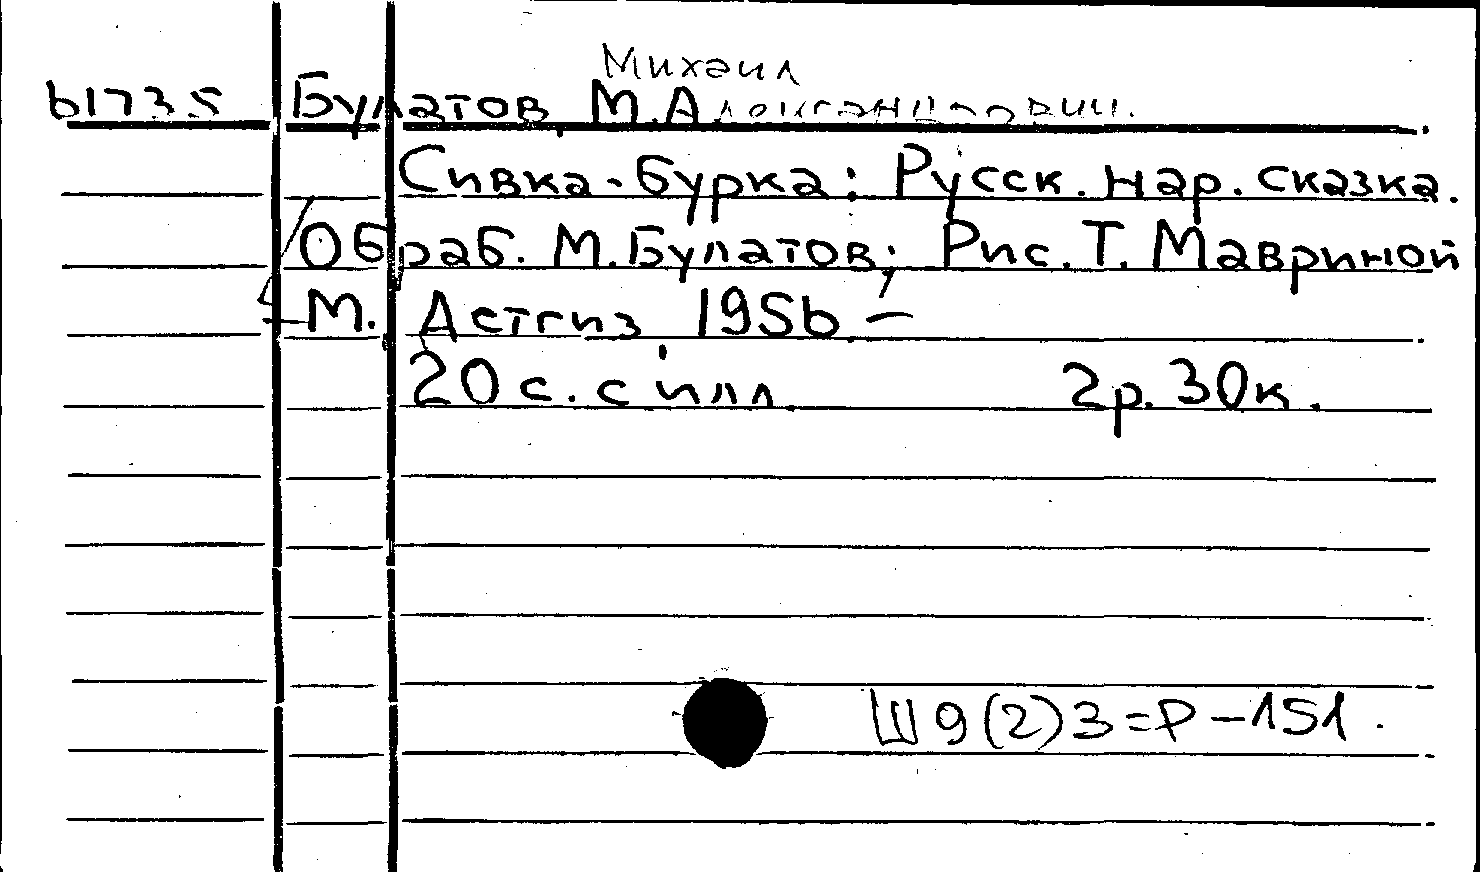 Михаил
61735 Булатов, М. Александрович.
Сивка-бурка: Русск. нар. сказка.
/Обраб. М. Булатов; Рис. Т. Мавриной/
— М., Детгиз, 1956 —
20 с. с илл. 2р. 30к.
Ш9(2)3=Р-151.